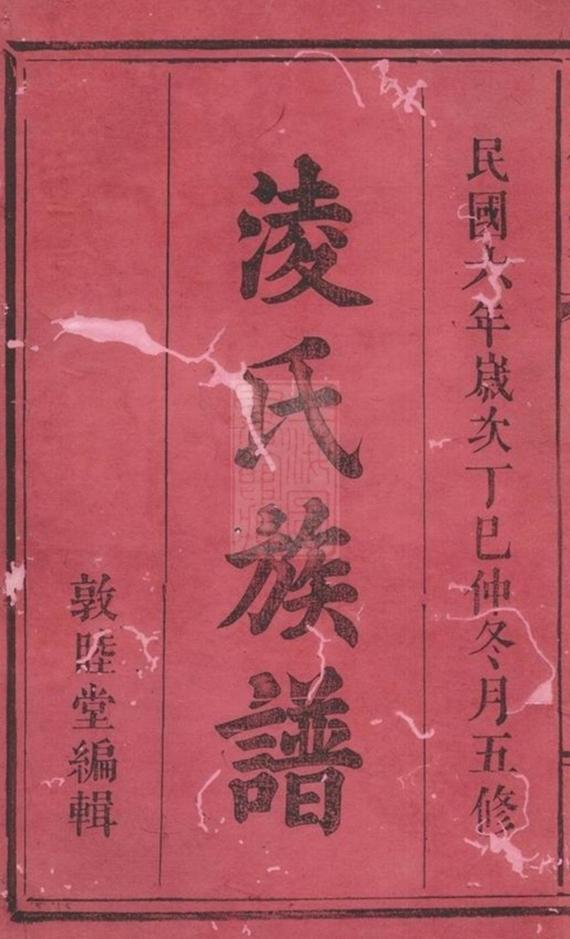 民國六年嵗次丁巳仲冬月五修
淩氏族譜
敦睦堂編輯